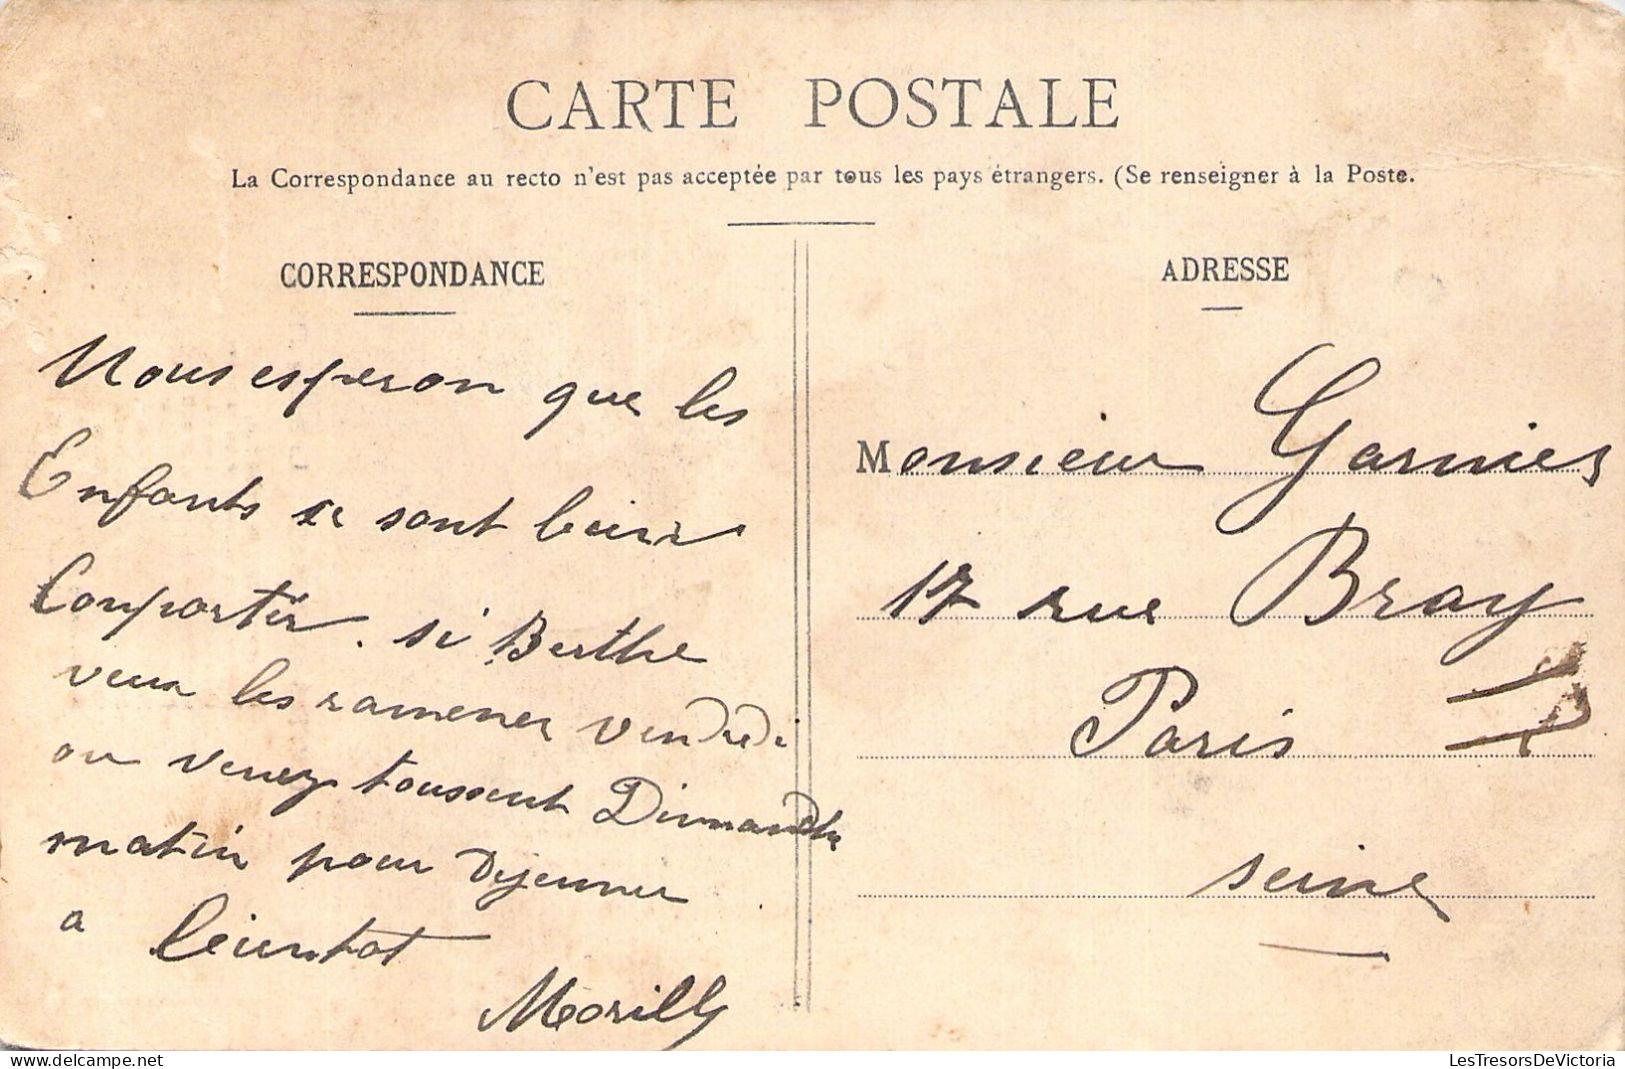 CARTE POSTALE
La Correspondance au recto n'est pas acceptée par tous les pays étrangers. (Se renseigner à la Poste.
CORRESPONDANCE
Nous esperon que les
Enfants se sont bein
Conporter. si Berthe
veux les ramener vendredi
ou venez toussent Dimanche
matin pour Dejeuner
a bientot
ADRESSE
Monsieur Garnier
17 rue Bray
Paris
seine
LesTresorsDeVictoria